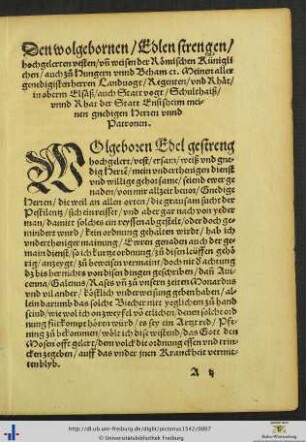 Den wolgebornen / Edlen strengen /
hochgelerten vesten / vñ weisen der Römischen Küniglichen / auch zů Hungern vnnd Beham ec. Meinen aller
genedigisten herren Landuogt / Regenten / vnd Rhät /
in obern Elsäß / auch Statt vogt / Schulthaiß /
vnnd Rhat der Statt Ensisheim meinen
gnedigen Herren vnnd
Patronen.
WOlgeboren Edel gestreng
hochgelert / vest / ersam / weiß vnd gnedig
Herẽ / mein vnderthenigen dienst
vnd willige gehorsame / seiend ewer genaden /
von mir allzeit beuor / Gnedige
Herren / die weil an allen orten / die grausam sucht der
Pestilentz / sich ein reisset / vnd aber gar noch von yederman /
damit solches ein
wurd / kein ordnung gehalten wirt / hab ich
vndertheniger mainung / Ewren genaden auch der gemain
dienst / so ich kurtze ordnung / zů disen leüffen gehörig /
anzeygt / zů beweisen vermaint / doch mit
das bißher nichts von disen dingen geschriben / dañ Auicenna /
Galenus / Rases vñ zů vnsern zeiten Monardus
vnd vil ander / köstlich vnderweisung geben haben / allein
darumb das solche Biecher nit yeglichem zů hand
seind / wie wol ich on zweyfel
es sey ein Artzt red / Pfening
zů bekommen / wölt ich dise
das Gott den
Mosen offt gelert / dem volck die ordnung essen vnd trincken
zegeben / auff das vnder jnen Kranckheit vermitten
blyb.
A ij
http://dl.ub.uni-freiburg.de/diglit/pictorius1542/0007
© Universitätsbibliothek Freiburg
Baden-Württemberg